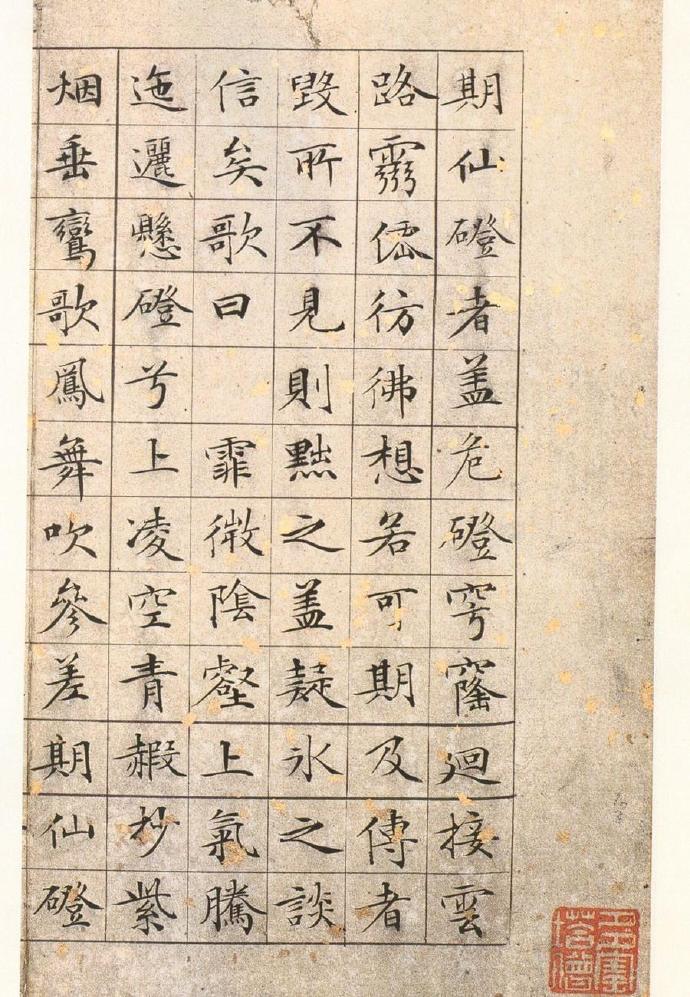 期仙磴者盖危磴穹窿迴接雲
路靈僊彷彿想若可期及傅者
毀所不見則黜之盖疑氷之談
信矣歌曰　霏微陰壑上氣騰
迤邐懸磴兮上凌空青赮杪紫
烟垂鸞歌鳳舞吹參差期仙磴